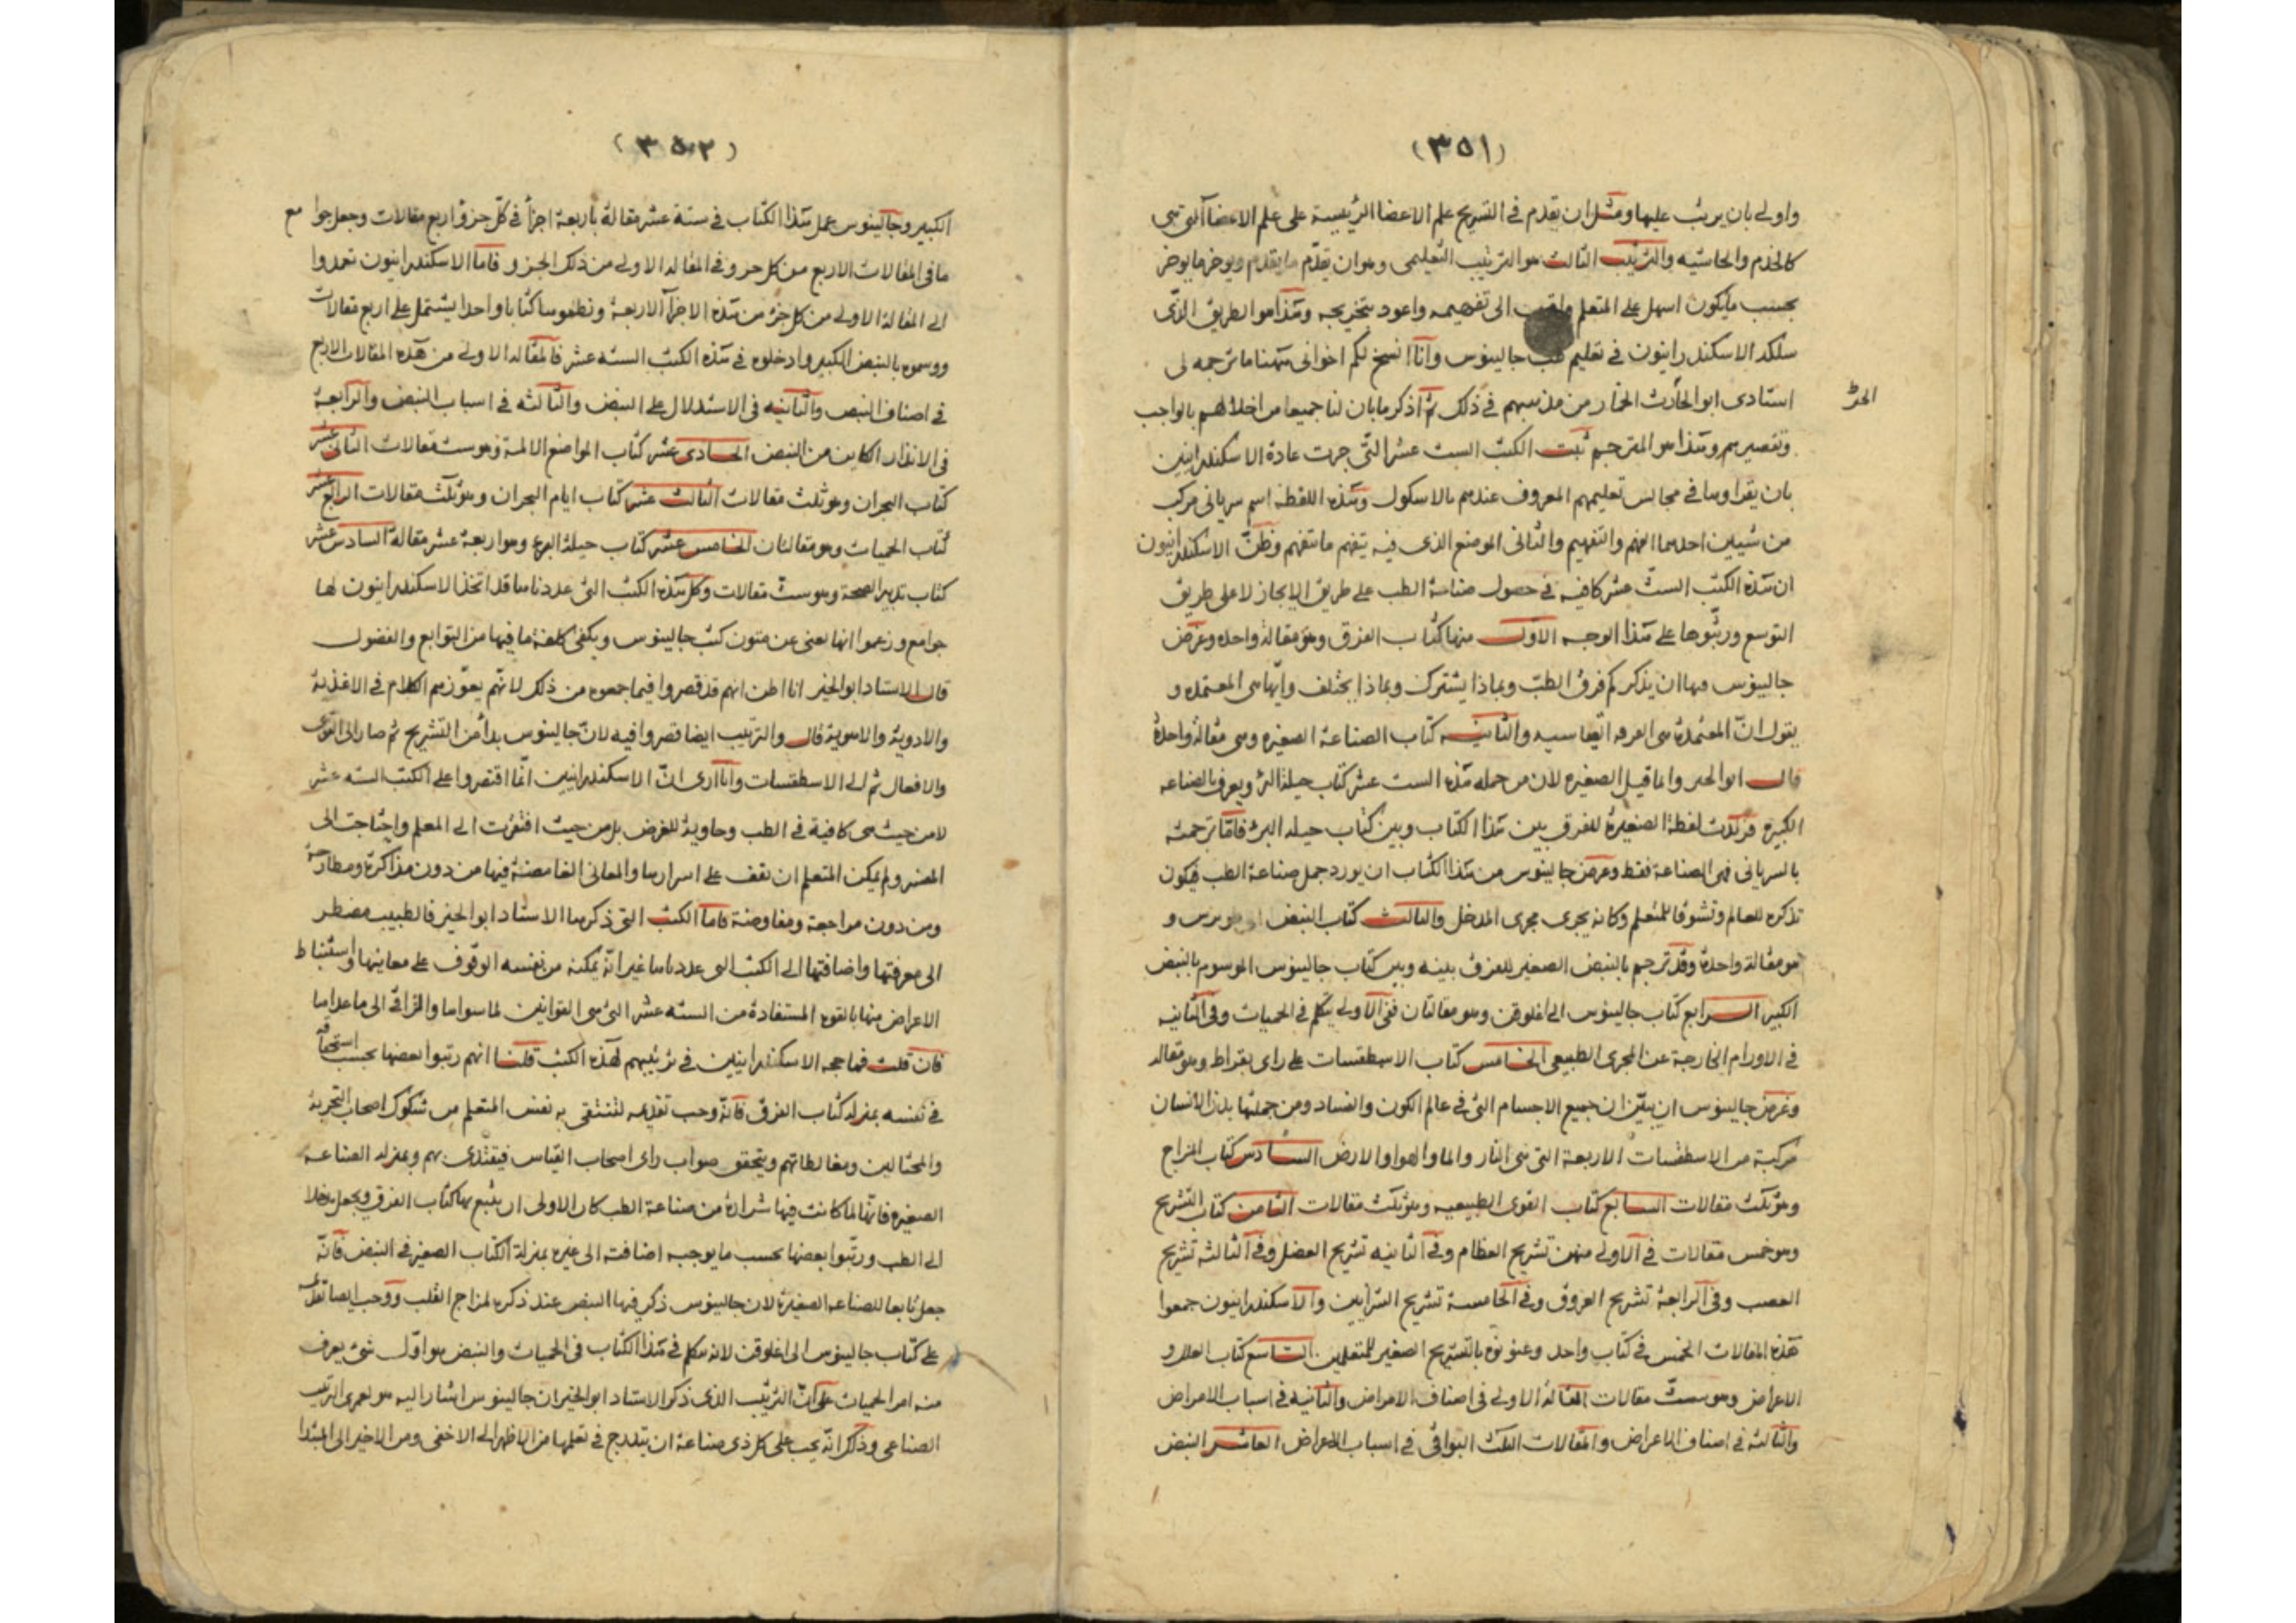 (٣٥١)
واولى بان يرتب عليها ومثل ان يقدم في التشريح علم الاعضا الرئيسية على علم الاعضا التي هي
كالخدم والحاشيه والترتيب الثالث هو الترتيب التعليمى وهو ان يقدّم ما يقدم ويوخر ما يوخر
بحسب ما يكون اسهل على المتعلم واقرب الى تفهيمه واعود بتخريجه وهذا هو الطريق الذى
سلكه الاسكندرانيون في تعليم طب جالينوس وانا انسخ لكم اخوانى ههنا ما ترجمه لى
استادى ابو الحارث الخمار من مذهبهم في ذلك ثم اذكر ما بان لنا جميعا من اخلالهم بالواجب
وتقصيرهم وهذا هو المترجم ثبت الكتب الست عشر التى جرت عادة الاسكندرانيين
بان يقراوها في مجالس تعليمهم المعروف عندهم بالاسكول وهذه اللفظة اسم سريانى مركب
من شيين احدهما الفهم والتفهيم والثانى الموضع الذى فيه يتفهم ما تتفهم وظنّ الاسكندرانيون
ان هذه الكتب الستّ عشر كافيه في حصول صناعة الطب على طريق الايجاز لا على طريق
التوسع ورتّبوها على هذا الوجه الاوّل منها كتاب الفرق وهو مقالة واحده وغرض
جالينوس فيها ان يذكر كم فرق الطبّ وبماذا يشترك وبماذا يختلف وايّها هى المعتمده و
يقول انّ المعتمدة هى الفرقه القياسيه والثانيه كتاب الصناعة الصغيره وهى مقالة واحدة
قال ابو الخير وانما قيل الصغيره لان من جمله هذه الست عشر كتاب حيلة البرؤ ويعرف بالصناعه
الكبيرة فزيدت لفظة الصغيرة للفرق بين هذا الكتاب وبين كتاب حيله البرؤ فامّا ترجمته
بالسريانى فهى الصناعة فقط وغرض جالينوس من هذا الكتاب ان يورد جمل صناعة الطب فيكون
تذكره للعالم وتشوقا للمتعلم وكانه يجرى مجرى المدخل والثالث كتاب النبض الى طوبرس و
هو مقالة واحدة وقد ترجم بالنبض الصغير للفرق بينه وبين كتاب جالينوس الموسوم بالنبض
الكبير الـــرابع كتاب جالينوس الى اغلوقن وهو مقالتان ففى الاولى يتكلم في الحميات وفى الثانيه
في الاورام الخارجة عن المجرى الطبيعى الخامس كتاب الاسطقسات على راى بقراط وهو مقاله
وغرض جالينوس ان يبيّن ان جميع الاجسام التى في عالم الكون والفساد ومن جملتها بدن الانسان
مركبة من الاسطقسات الاربعة التى هى النار والما والهوا والارض السادس كتاب المزاج
وهو ثلث مقالات السابع كتاب القوى الطبيعيه وهو ثلث مقالات الثامن كتاب التشريح
وهو خمس مقالات في الاولى منهن تشريح العظام وفى الثانيه تشريح العضل وفى الثالثه تشريح
العصب وفى الرابعة تشريح العروق وفى الخامسة تشريح الشرايين والاسكندرانيون جمعوا
هذه المقالات الخمس في كتاب واحد وعنونوه بالتشريح الصغير للمتعلمين. التاسع كتاب العلل و
الاعراض وهو ستّ مقالات المقالة الاولى في اصناف الامراض والثانيه في اسباب الامراض
والثالثه في اصناف الاعراض والمقالات الثلث البواقى في اسباب الاعراض العاشر النبض
(٣٥٢)
الكبير وجالينوس عمل هذا الكتاب في ستة عشر مقالة باربعة اجزا في كلّ جزؤ اربع مقالات وجعل جوامع
ما في المقالات الاربع من كل جزو في المقاله الاولى من ذلك الجزو فاما الاسكندرانيون تعمدوا
الى المقالة الاولى من كل جزء من هذه الاجزآ الاربعة ونظموها كتابا واحدا يشتمل على اربع مقالات
ووسموه بالنبض الكبير وادخلوه في هذه الكتب السته عشر فالمقاله الاولى من هذه المقالات الاربع
في اصناف النبض والثانيه فى الاستدلال على النبض والثالثه في اسباب النبض والرابعة
فى الانذار الكاين من النبض الحادى عشر كتاب المواضع الالمة وهو ست مقالات الثانى عشر
كتاب البحران وهو ثلث مقالات الثالث عشر كتاب ايام البحران وهو ثلث مقالات الرابع عشر
كتاب الحميات وهو مقالتان الخامس عشر كتاب حيلة البرء وهو اربعة عشر مقالة السادس عشر
كتاب تدبير الصحة وهو ستّ مقالات وكل هذه الكتب التى عددناها قد اتخذ الاسكندرانيون لها
جوامع وزعموا انها تغنى عن متون كتب جالينوس ويكفى كلفة ما فيها من التوابع والفضول
قال الاستاد ابو الخير انا اظن انهم قد قصروا فيما جمعوه من ذلك لانّهم يعوّزهم الكلام في الاغذية
والادوية والاهوية قال والترتيب ايضا قصروا فيه لانّ جالينوس بدأ من التشريح ثم صار الى القوى
والافعال ثم الى الاسطقسات وانا ارى انّ الاسكندرانيين انّما اقتصروا على الكتب السته عشر
لا من حيث هى كافية في الطب وحاوية للغرض بل من حيث افتقرت الى المعلم واحتاجت الى
المفسر ولم يمكن المتعلم ان يقف على اسرارها والمعانى الغامضة فيها من دون مذاكرة ومطارحة
ومن دون مراجعة ومفاوضة فاما الكتب التى ذكرها الاستاد ابو الخير فالطبيب مضطر
الى معرفتها واضافتها الى الكتب التى عددناها غير انّه يمكنه من نفسه الوقوف على معانيها واستنباط
الاغراض منها بالقوة المستفادة من السته عشر التى هى القوانين لما سواها والمراقى الى ما عداها
فان قلت فما حجه الاسكندرانيين في ترتيبهم لهذه الكتب قلنا انهم رتبوا بعضها بحسب استحقاقه
في نفسه بمنزله كتاب الفرق فانّه وجب تقديمه لتنتقى به نفس المتعلم من شكوك اصحاب التجربة
والمحتالين ومغالطاتهم ويتحقق صواب راى اصحاب القياس فيقتدى بهم وبمنزله الصناعه
الصغيره فانّها لما كانت فيها شرارة من صناعة الطب كان الاولى ان يتبع بها كتاب الفرق ويجعل مدخلا
الى الطب ورتّبوا بعضها بحسب ما يوجبه اضافته الى غيره بمنزلة الكتاب الصغير في النبض فانّه
جعل تابعا للصناعه الصغيرة لان جالينوس ذكر فيها النبض عند ذكره لمزاج القلب ووجب ايضا تقديمه
على كتاب جالينوس الى اغلوقن لانه تكلم في هذا الكتاب فى الحميات والنبض هو اوّل شئ يعرف
منه امر الحميات على انّ الترتيب الذى ذكر الاستاد ابو الخير ان جالينوس اشار اليه هو لعمرى الترتيب
الصناعى وذلك انّه يجب على كل ذى صناعة ان يتدرج في تعلمها من الاظهر الى الاخفى ومن الاخير الى المبتدا